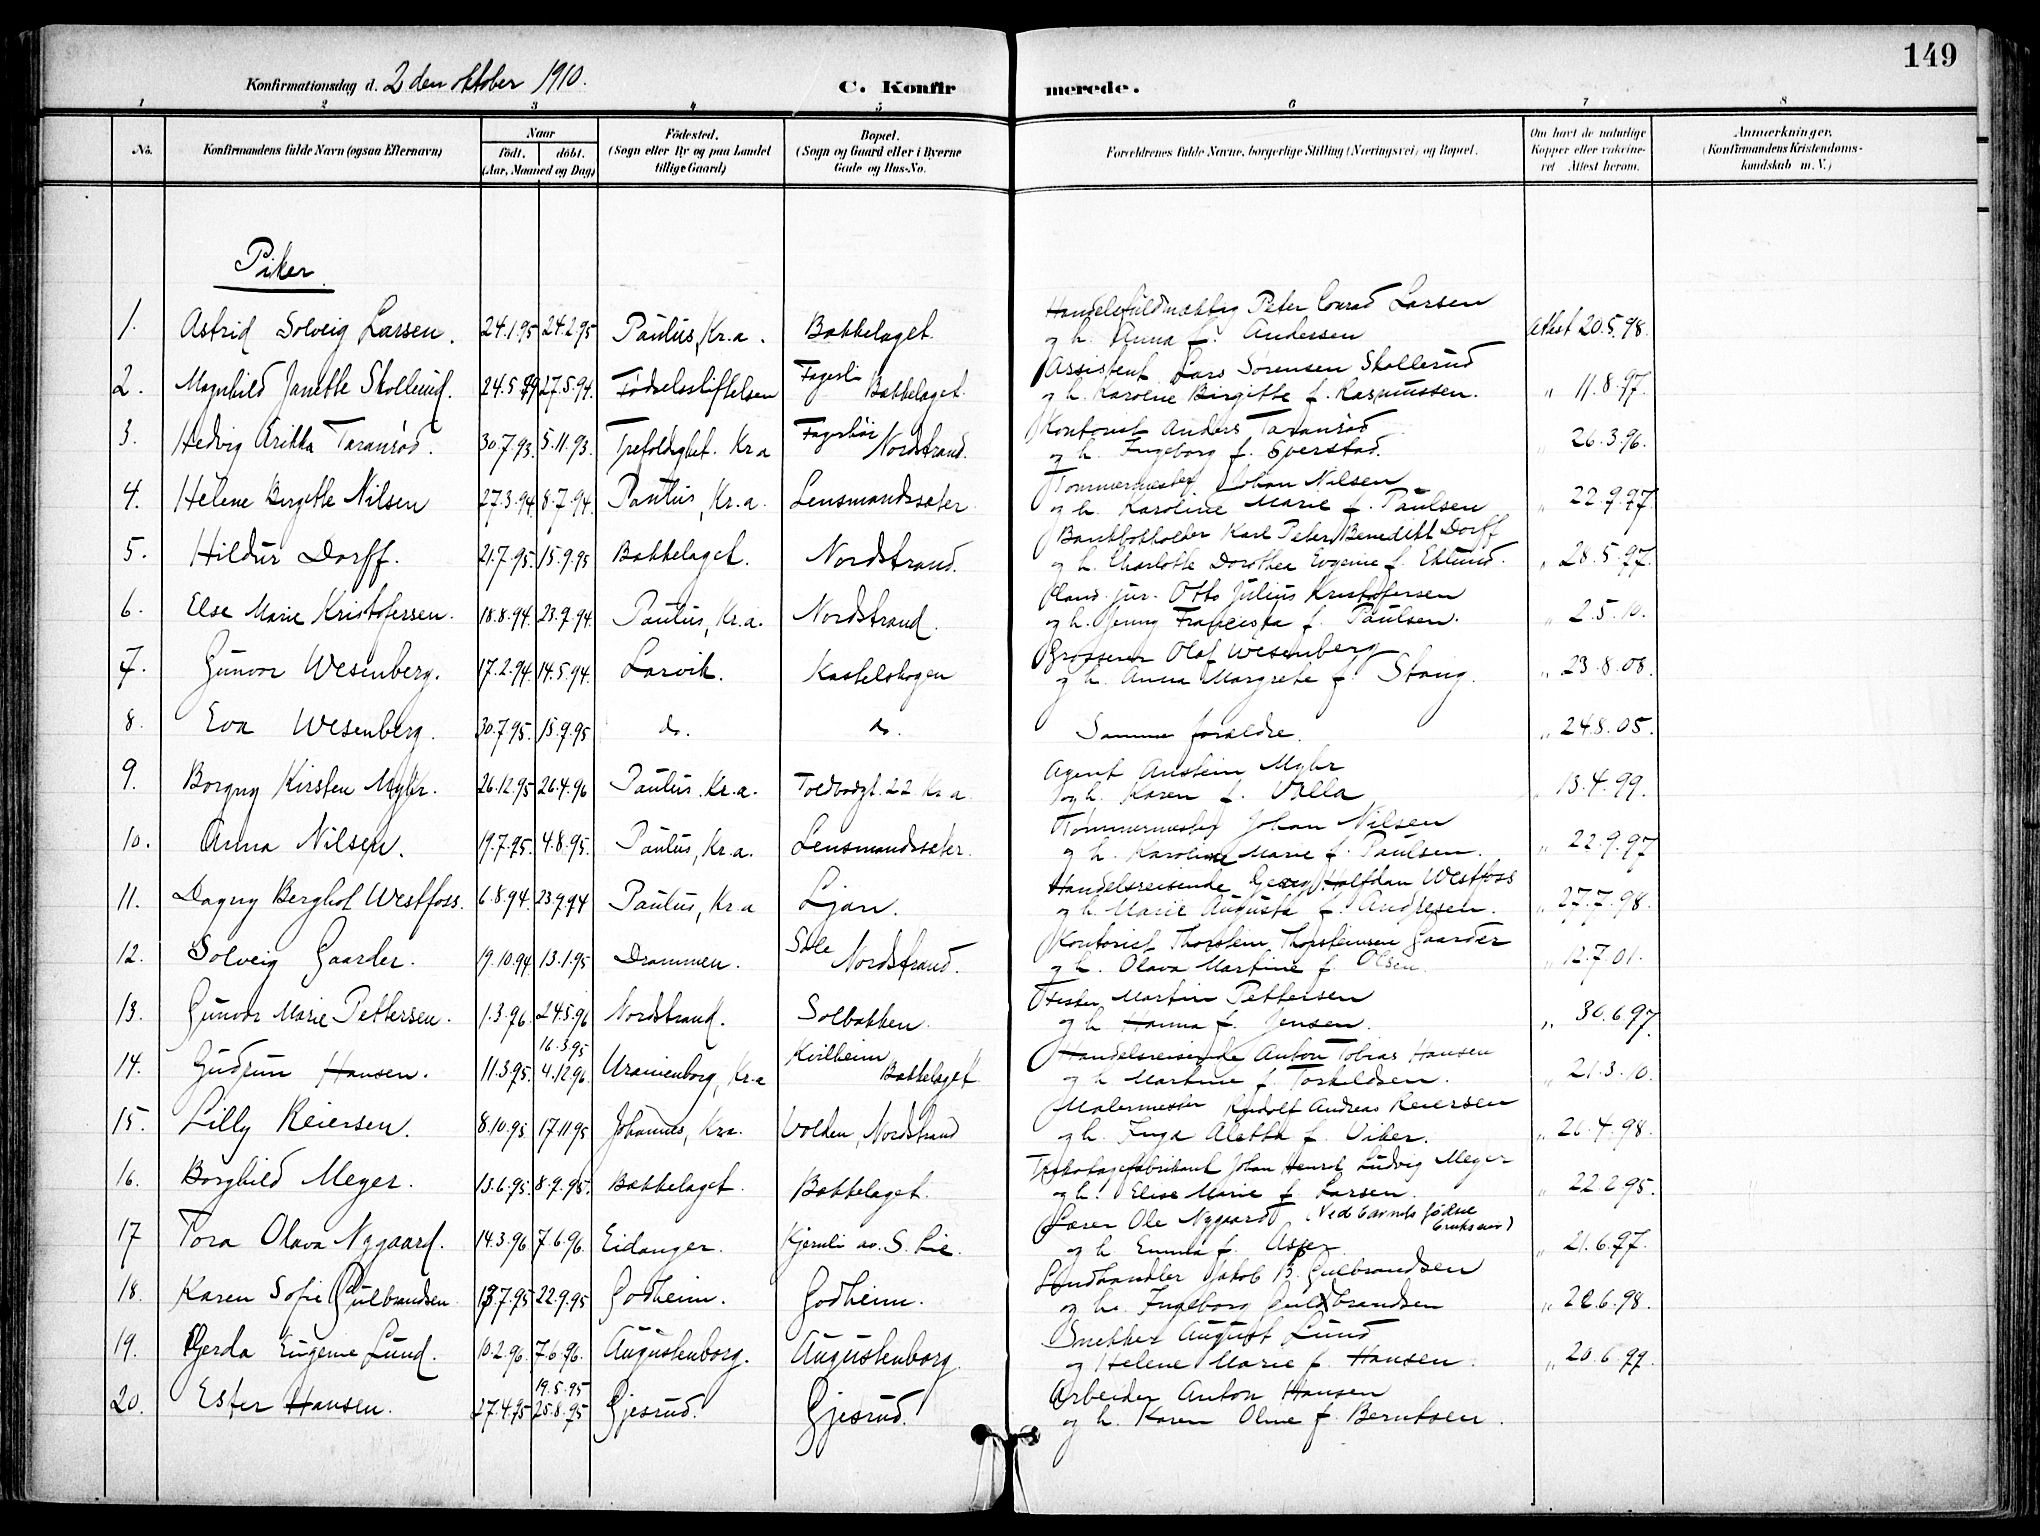 149
Konfirmationsdag d. 2 den oktober 1910.
C. Konfirmerede.
1 2 3 4 5 6 7 8
No.
Konfirmandens fulde Navn (ogsaa Efternavn)
Naar
födt. döbt.
(Aar, Maaned og Dag)
Födested.
(Sogn eller By og paa Landet
tillige Gaard)
Bopæl.
(Sogn og Gaard eller i Byerne
Gade og Hus-No.
Forældrenes fulde Navne, borgerlige Stilling (Næringsvei) og Bopæl.
Om havt de naturlige
Kopper eller vakcine-
ret Attest herom.
Anmærkninger.
(Konfirmandens Kristendoms-
kundskab m. V.)
Piker
1. Astrid Solveig Larsen. 24.1.95 24.2.95 Paulus, Kr.a. Bækkelaget. Handelsfuldmæktig Peter Conrad Larsen
og h. Anna f. Andersen attest 20.5.98.
2. Magnhild Janette Skollerud. 24.5.94 27.5.94. Fødselsstiftelsen Fagerli Bækkelaget. Assistent Lars Sørensen Skollerud
og h. Karoline Birgitte f. Rasmussen. " 11.8.97.
3. Hedvig Erikka Taranrød. 30.7.93. 5.11.93. Trefoldighet. Kr.a Nordstrand. Kontorist Anders Taranrød
og h. Ingeborg f. Everstad. " 26.3.96.
4. Helene Birgitte Nilsen 27.3.94. 8.7.94. Paulus, Kr.a. Lensmandssæter. Tømmermester Johan Nilsen
og h. Karoline Marie f. Paulsen " 22.9.97.
5. Hildur Dorff. 21.7.95. 15.9.95 Bækkelaget. Nordstrand. Bankbokholder Karl Peter Benedikt Dorff
og h. Charlotte Dorothea Eugenie f. Eklund. " 28.5.97.
6. Else Marie Kristofersen. 18.8.94. 23.9.94. Paulus, Kr.a. Nordstrand. Cand. jur. Otto Julius Kristofersen
og h. Jenny Franciska f. Paulsen. " 2.5.10.
7. Gunvor Wesenberg. 17.2.94. 14.5.94. Larvik. Kastelskogen Grosserer Olaf Wesenberg
og h. Anna Margrete f. Stang. " 23.8.08.
8. Eva Wesenberg. 30.7.95. 15.9.95 do. do. Samme forældre. " 24.8.05.
9. Borgny Kirsten Myhr. 26.12.95 26.4.96 Paulus. Kr.a. Toldbodgt. 22 Kr.a. Agent Anstein Myhr
og h. Karen f. Valla " 13.4.99.
10. Anna Nilsen. 19.7.95. 4.8.95. Paulus, Kr.a. Lensmandssæter. Tømmermester Johan Nilsen
og h. Karoline Marie f. Paulsen. " 22.9.97
11. Dagny Berghol Westfoss. 6.8.94. 23.9.94 Paulus, Kr.a Ljan. Handelsreisende Georg Halfdan Westfoss
og h. Marie Augusta f. Andresen. " 27.7.98.
12. Solveig Gaarder. 19.10.94 13.1.95 Drammen. Nordstrand. Kontorist Thorstein Thorsteinsen Gaarder
og h. Olava Martine f. Olsen. " 12.7.01.
13. Gunvor Marie Pettersen. 1.3.96. 24.5.96 Nordstrand. Solbakken. Martin Pettersen
og h. Hanna f. Jensen. " 30.6.97.
14. Gudrun Hansen. 11.3.95. 16.3.95 4.12.96. Uranienborg, Kr.a Kvilheim Bækkelaget. Handelsreisende Anton Tobias Hansen
og h Martine f. Torkildsen. " 21.3.10.
15. Lilly Reiersen. 8.10.95. 17.11.95 Johannes, Kr.a. Volden, Nordstrand Malermester Rudolf Andreas Reiersen
og h. Inga Aletta f. Viker. " 26.4.98.
16. Borghild Meyer. 13.6.95. 8.9.95. Bækkelaget. Bækkelaget. Trikotagefabrikant Johan Henrik Ludvig Meyer
og h. Elise Marie f Larsen. " 22.2.95.
17 Tora Olava Nygaard. 14.3.96 7.6.96. Eidanger. Kjernli av. S. Lie. Lærer Ole Nygaard (Ved barnets fødsel
og h Emma f. " 21.6.97.
18. Karen Sofie Gulbrandsen. 13.7.95 22.9.95 Godheim. Godheim. Landhandler Jakob B. Gulbrandsen
og h. Ingeborg Gulbrandsen " 22.6.98.
19. Gerda Eugenie Lund. 10.2.96. 7.6.96. Augustenborg. Augustenborg. Snekker August Lund
og Helene Marie f. Hansen. " 20.6.99.
20. Ester Hansen. 27.4.95 19.5.95 25.8.95 Gjesrud. Gjesrud. Arbeider Anton Hansen
og h. Karen Oline f. Berntsen.